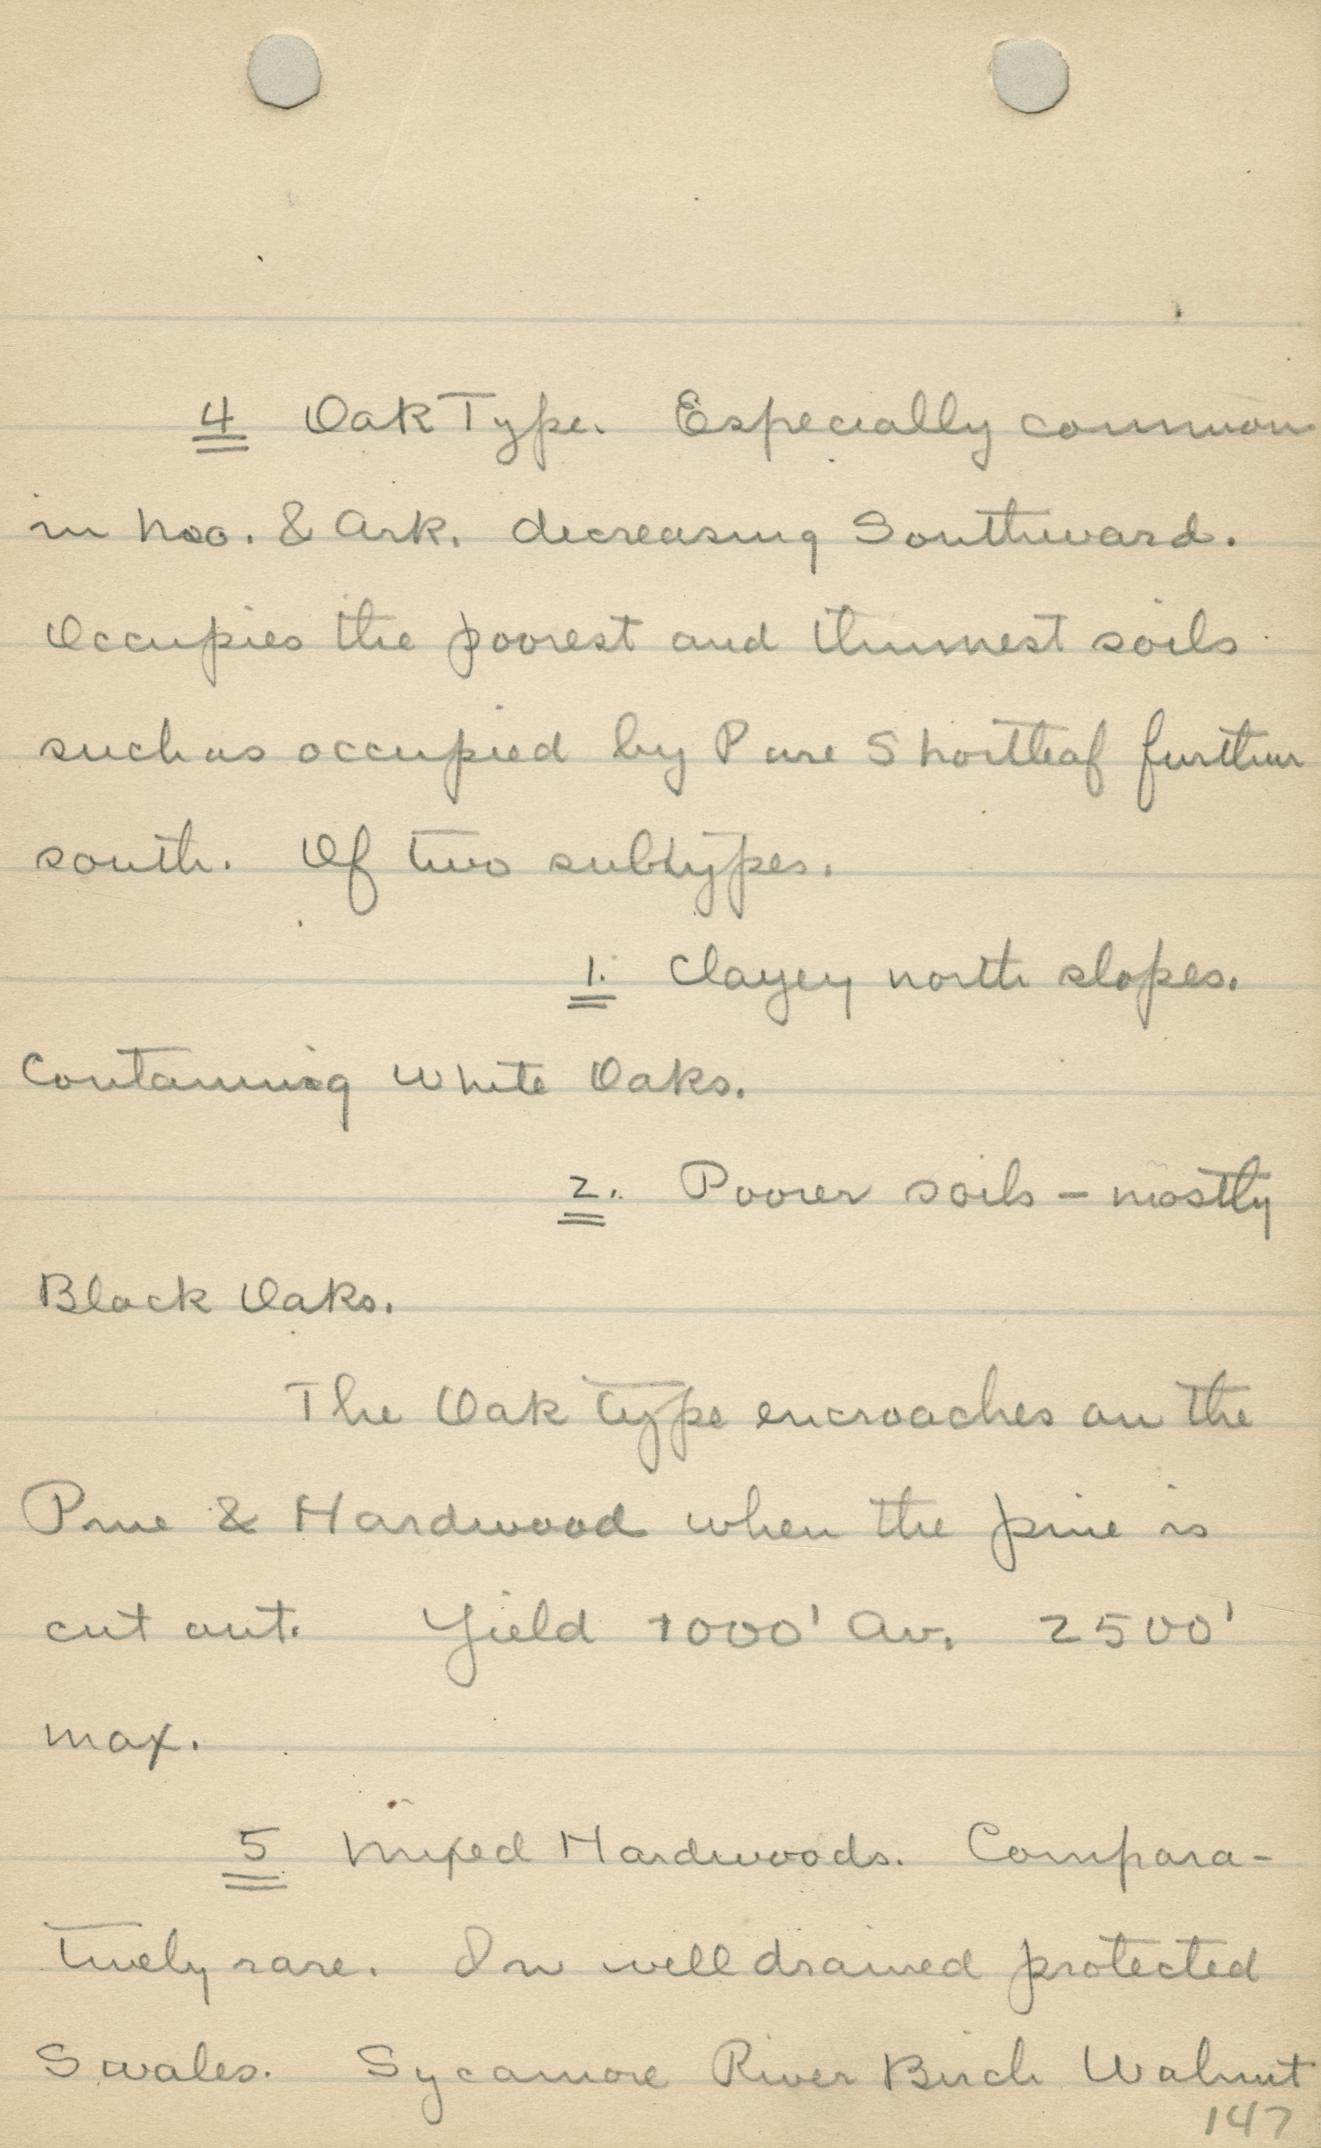 4 Oak Type. Especially common
in Mo. & Ark. decreasing Southward.
Occupies the poorest and thinnest soils
such as occupied by Pure Shortleaf further
south. Of two subtypes.
1. Clayey north slopes.
Containing White Oaks.
2. Poorer soils - mostly
Black Oaks.
The Oak type encroaches on the
Pine & Hardwood when the pine is
cut out. Yield 1000' Av. 2500'
max.
5 Mixed Hardwoods. Compara-
tively rare. In well drained protected
Swales. Sycamore River Birch Walnut
147